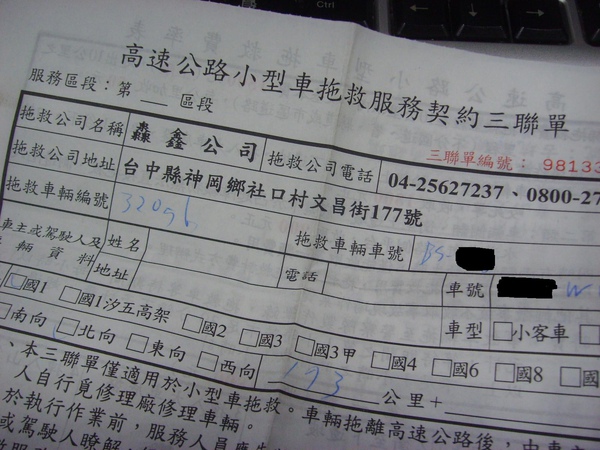 高速公路小型車拖救服務契約三聯單
服務區段：第 區段
三聯單編號： 98133
拖救公司名稱 鱻鑫公司 拖救公司電話 04-25627237、0800-27
拖救公司地址 台中縣神岡鄉社口村文昌街177號
拖救車輛編號 3209 拖救車輛車號 BS-
車主或駕駛人及 姓名 電話 車號 W
車輛資料 地址 車型 □小客車 □
□國1 □國1汐五高架 □國2 □國3 □國3甲 □國4 □國6 □國8 □國
□南向 □北向 □東向 □西向 193 公里＋
、本三聯單僅適用於小型車拖救。車輛拖離高速公路後，由車主
人自行覓修理廠修理車輛。
於執行作業前，服務人員應
或駕駛人瞭解